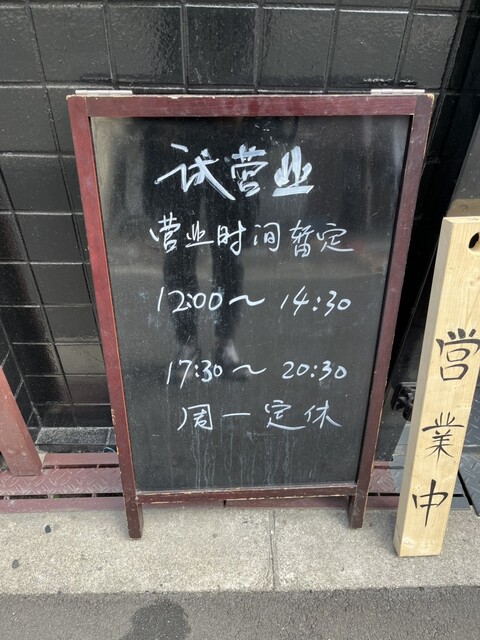 试营业
营业时间暂定
12:00～14:30
17:30～20:30
周一定休
営業中